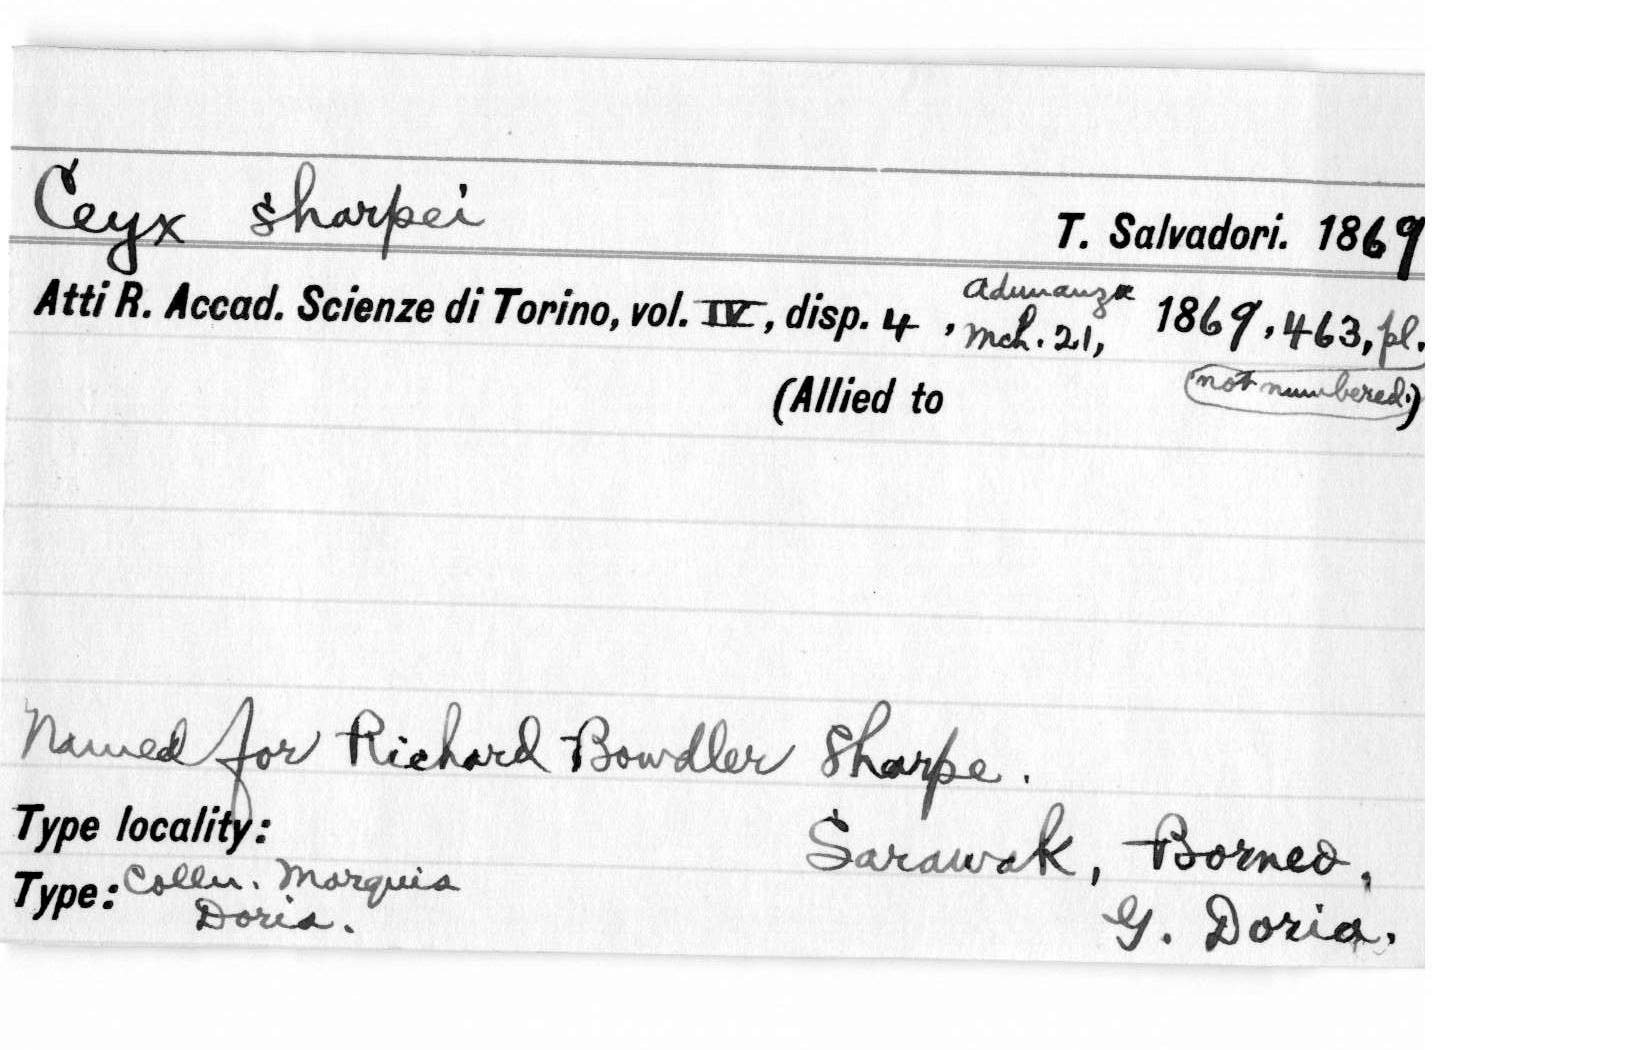 Ceyx sharpei T. Salvadori. 1869
Atti R. Accad. Scienze di Torino, vol. IV, disp. 4, adunanza mch. 21, 1869, 463, pl.
(Allied to not numbered.)
Named for Richard Bowdler Sharpe.
Type locality: Sarawak, Borneo,
Type: Colln. Marquis G. Doria.
Doria.